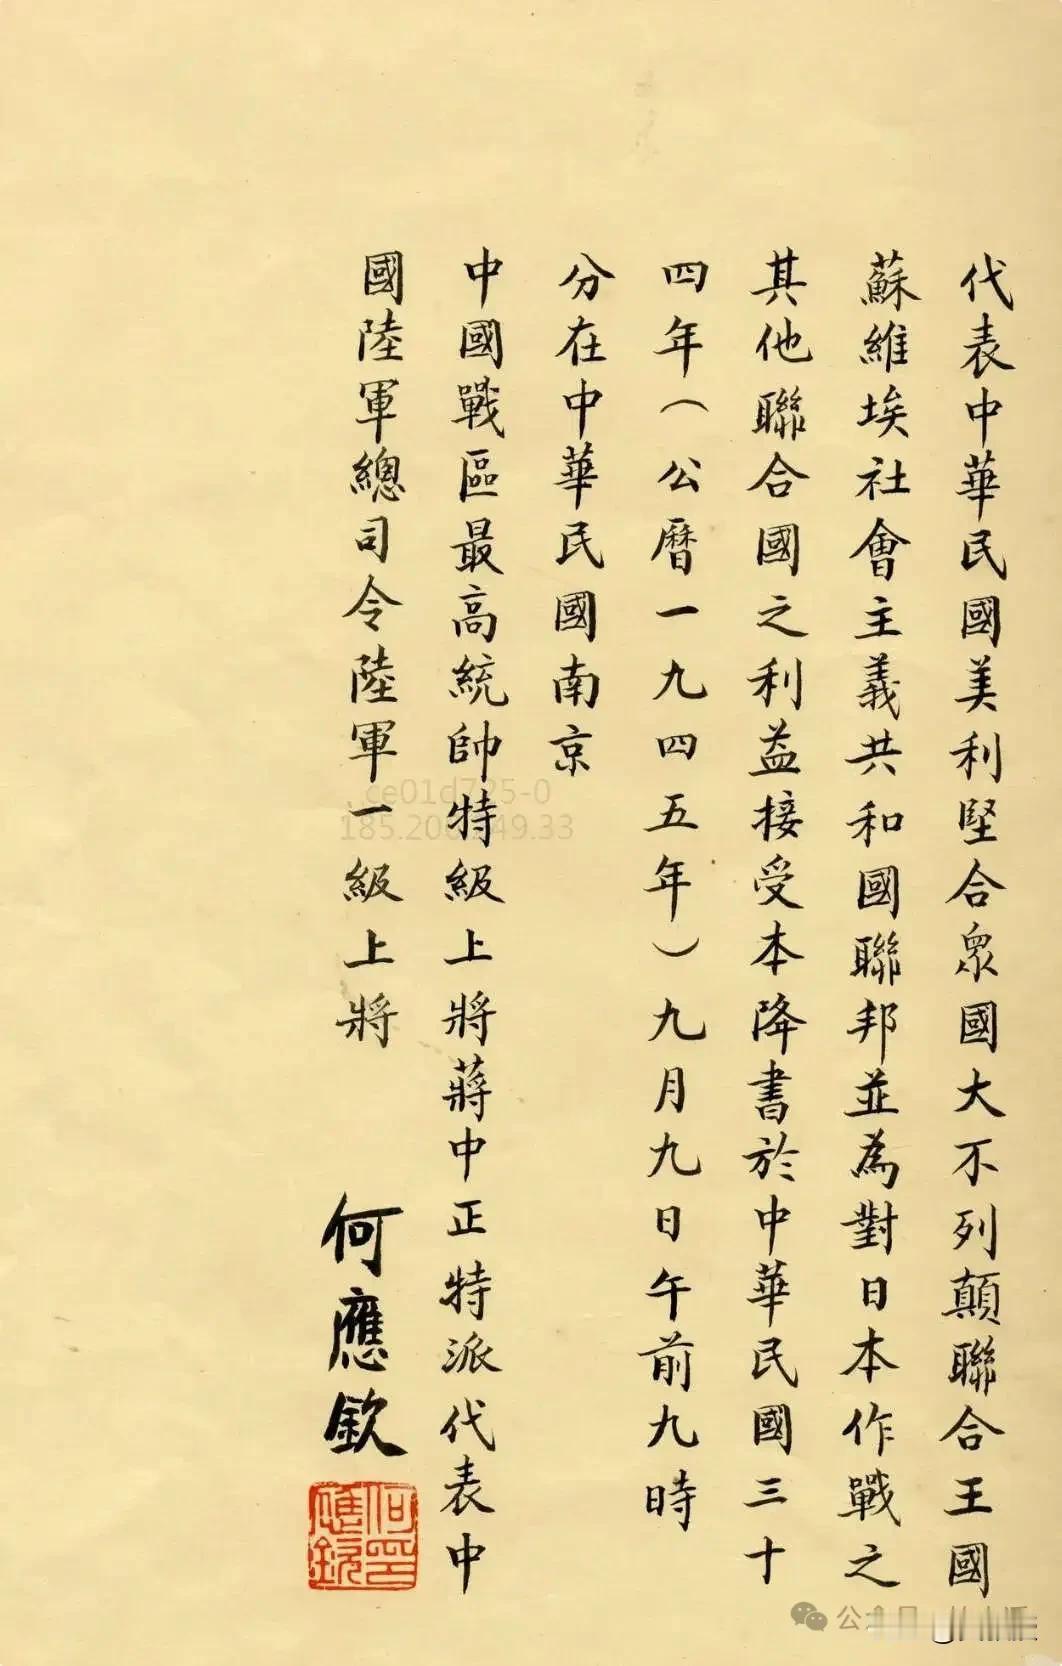 代表中華民國美利堅合眾國大不列顛聯合王國
蘇維埃社會主義共和國聯邦並為對日本作戰之
其他聯合國之利益接受本降書於中華民國三十
四年（公曆一九四五年）九月九日午前九時
分在中華民國南京
中國戰區最高統帥特級上將蔣中正特派代表中
國陸軍總司令陸軍一級上將
何應欽
何應欽印
ce01d725-0